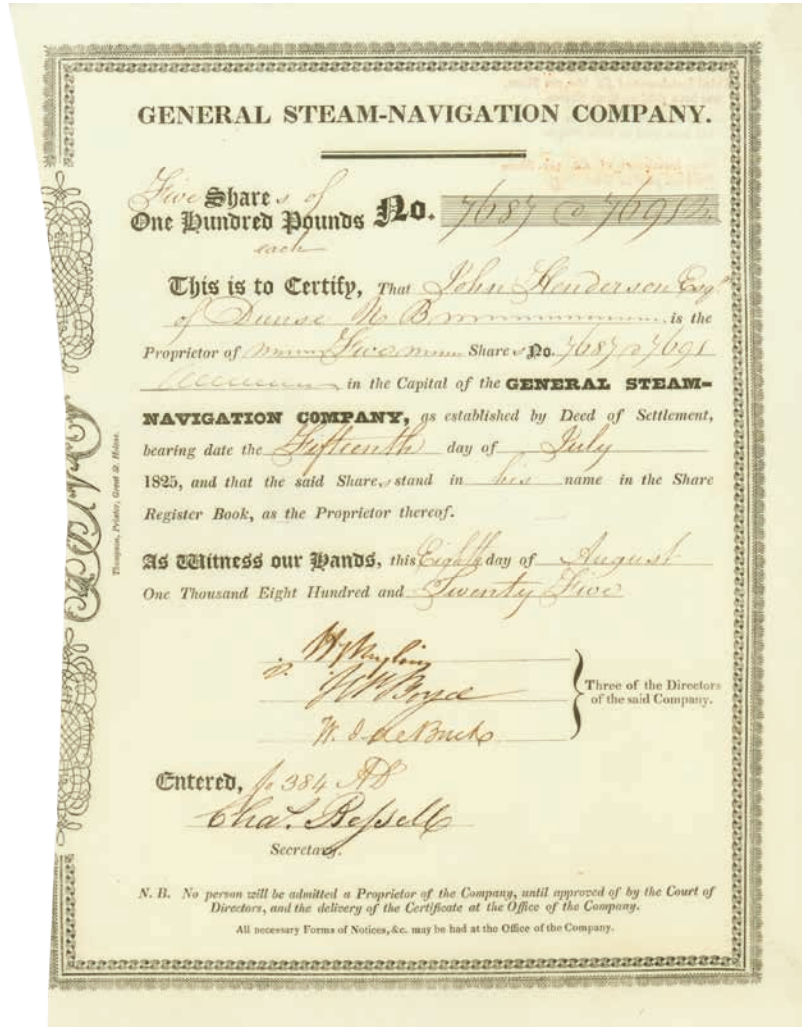 GENERAL STEAM-NAVIGATION COMPANY.
Five Shares of
One Hundred Pounds No. 7687 @ 7691
each
This is to Certify, That John Henderson Esqr
of Dunse N B is the
Proprietor of Five Shares No. 7687 @ 7691
in the Capital of the GENERAL STEAM-
NAVIGATION COMPANY, as established by Deed of Settlement,
bearing date the Fifteenth day of July
1825, and that the said Shares stand in his name in the Share
Register Book, as the Proprietor thereof.
As Witness our Hands, this Eighth day of August
One Thousand Eight Hundred and Twenty Five
Boyce
W. J. de Bucks
Three of the Directors
of the said Company.
Entered, fo 384
Chas. Bessell
Secretary.
N. B. No person will be admitted a Proprietor of the Company, until approved of by the Court of
Directors, and the delivery of the Certificate at the Office of the Company.
All necessary Forms of Notices, &c. may be had at the Office of the Company.
Thompson, Printer, Great St. Helens.